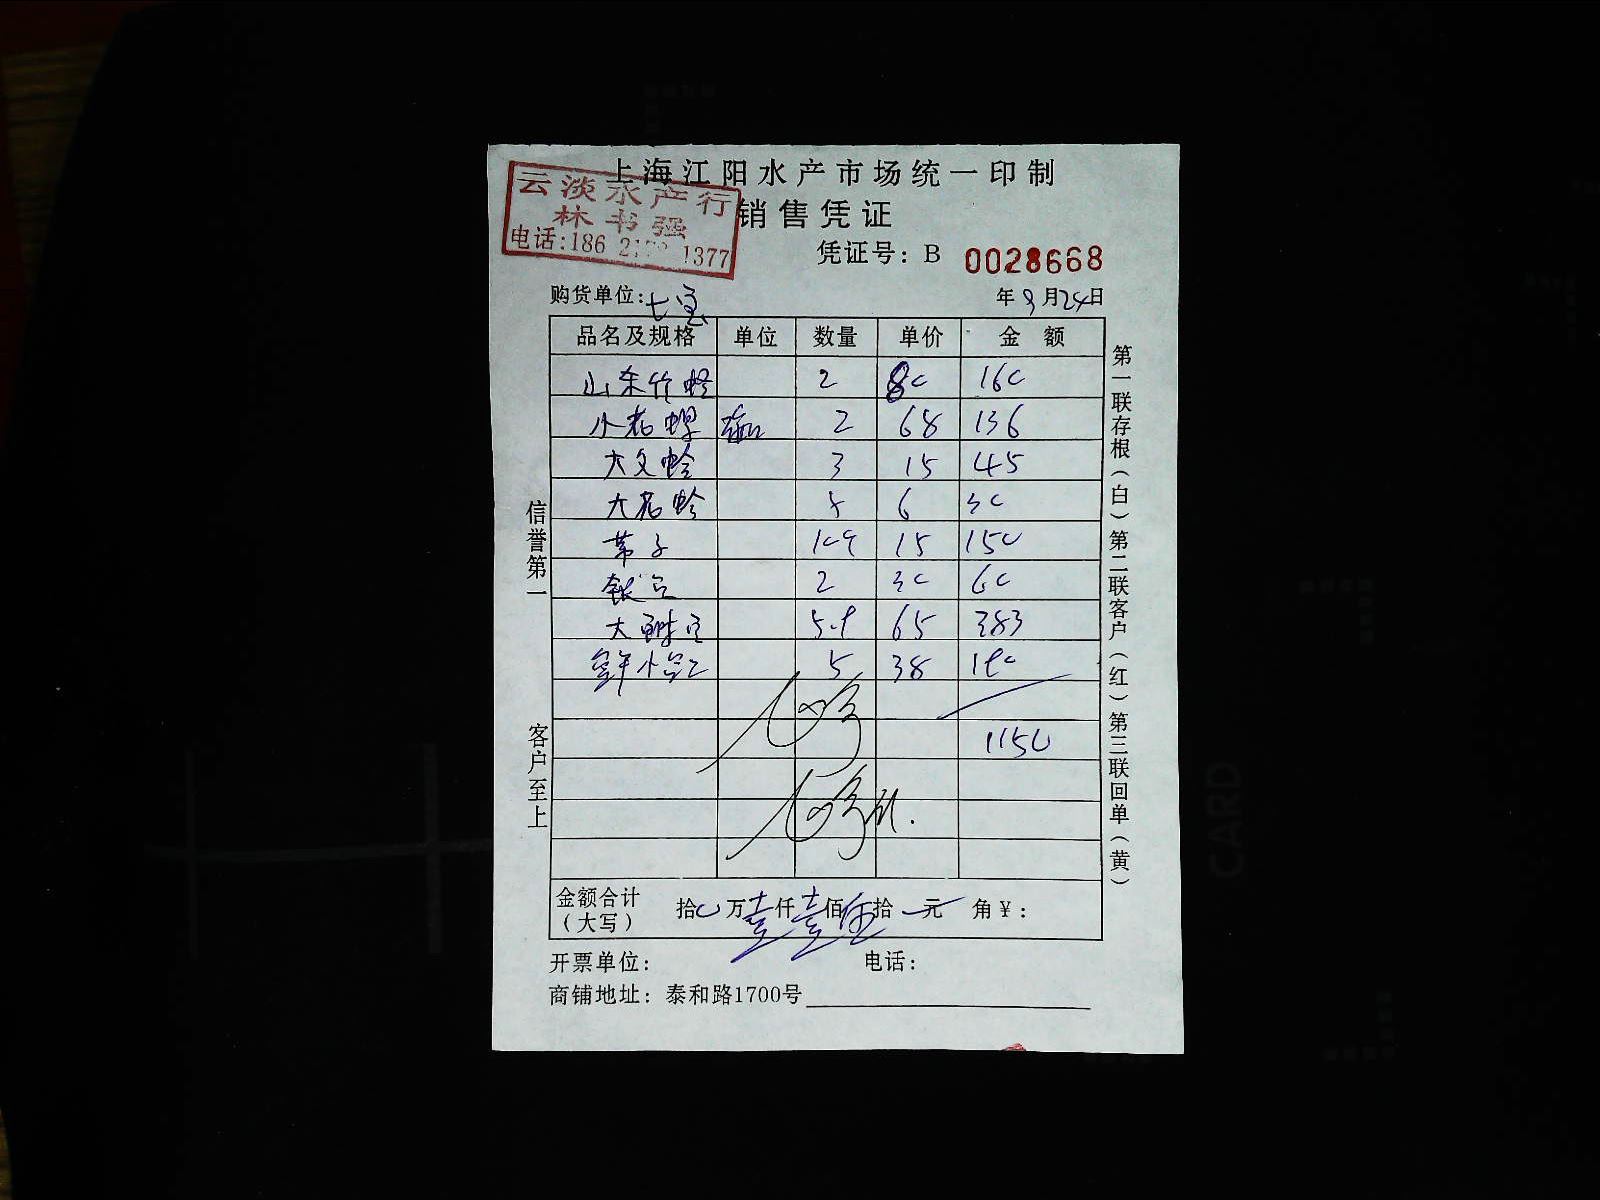 上海江阳水产市场统一印制
云淡水产行
林书强
电话:186 1377
销售凭证
凭证号: B 0028668
购货单位: 七宝 年 9 月 24 日
品名及规格 单位 数量 单价 金 额
山东竹蛏 2 80 160
小花螺 2 68 136
大文蛤 3 15 45
大花蛤 5 6 30
15 150
2 30 60
大 5.9 65 383
5 38 190
1150
金额合计
(大写) 拾 0 万 壹 仟 壹 佰 伍 拾 元 角 ¥:
开票单位: 电话:
商铺地址: 泰和路1700号
信誉第一 客户至上
第一联存根(白)第二联客户(红)第三联回单(黄)
CARD